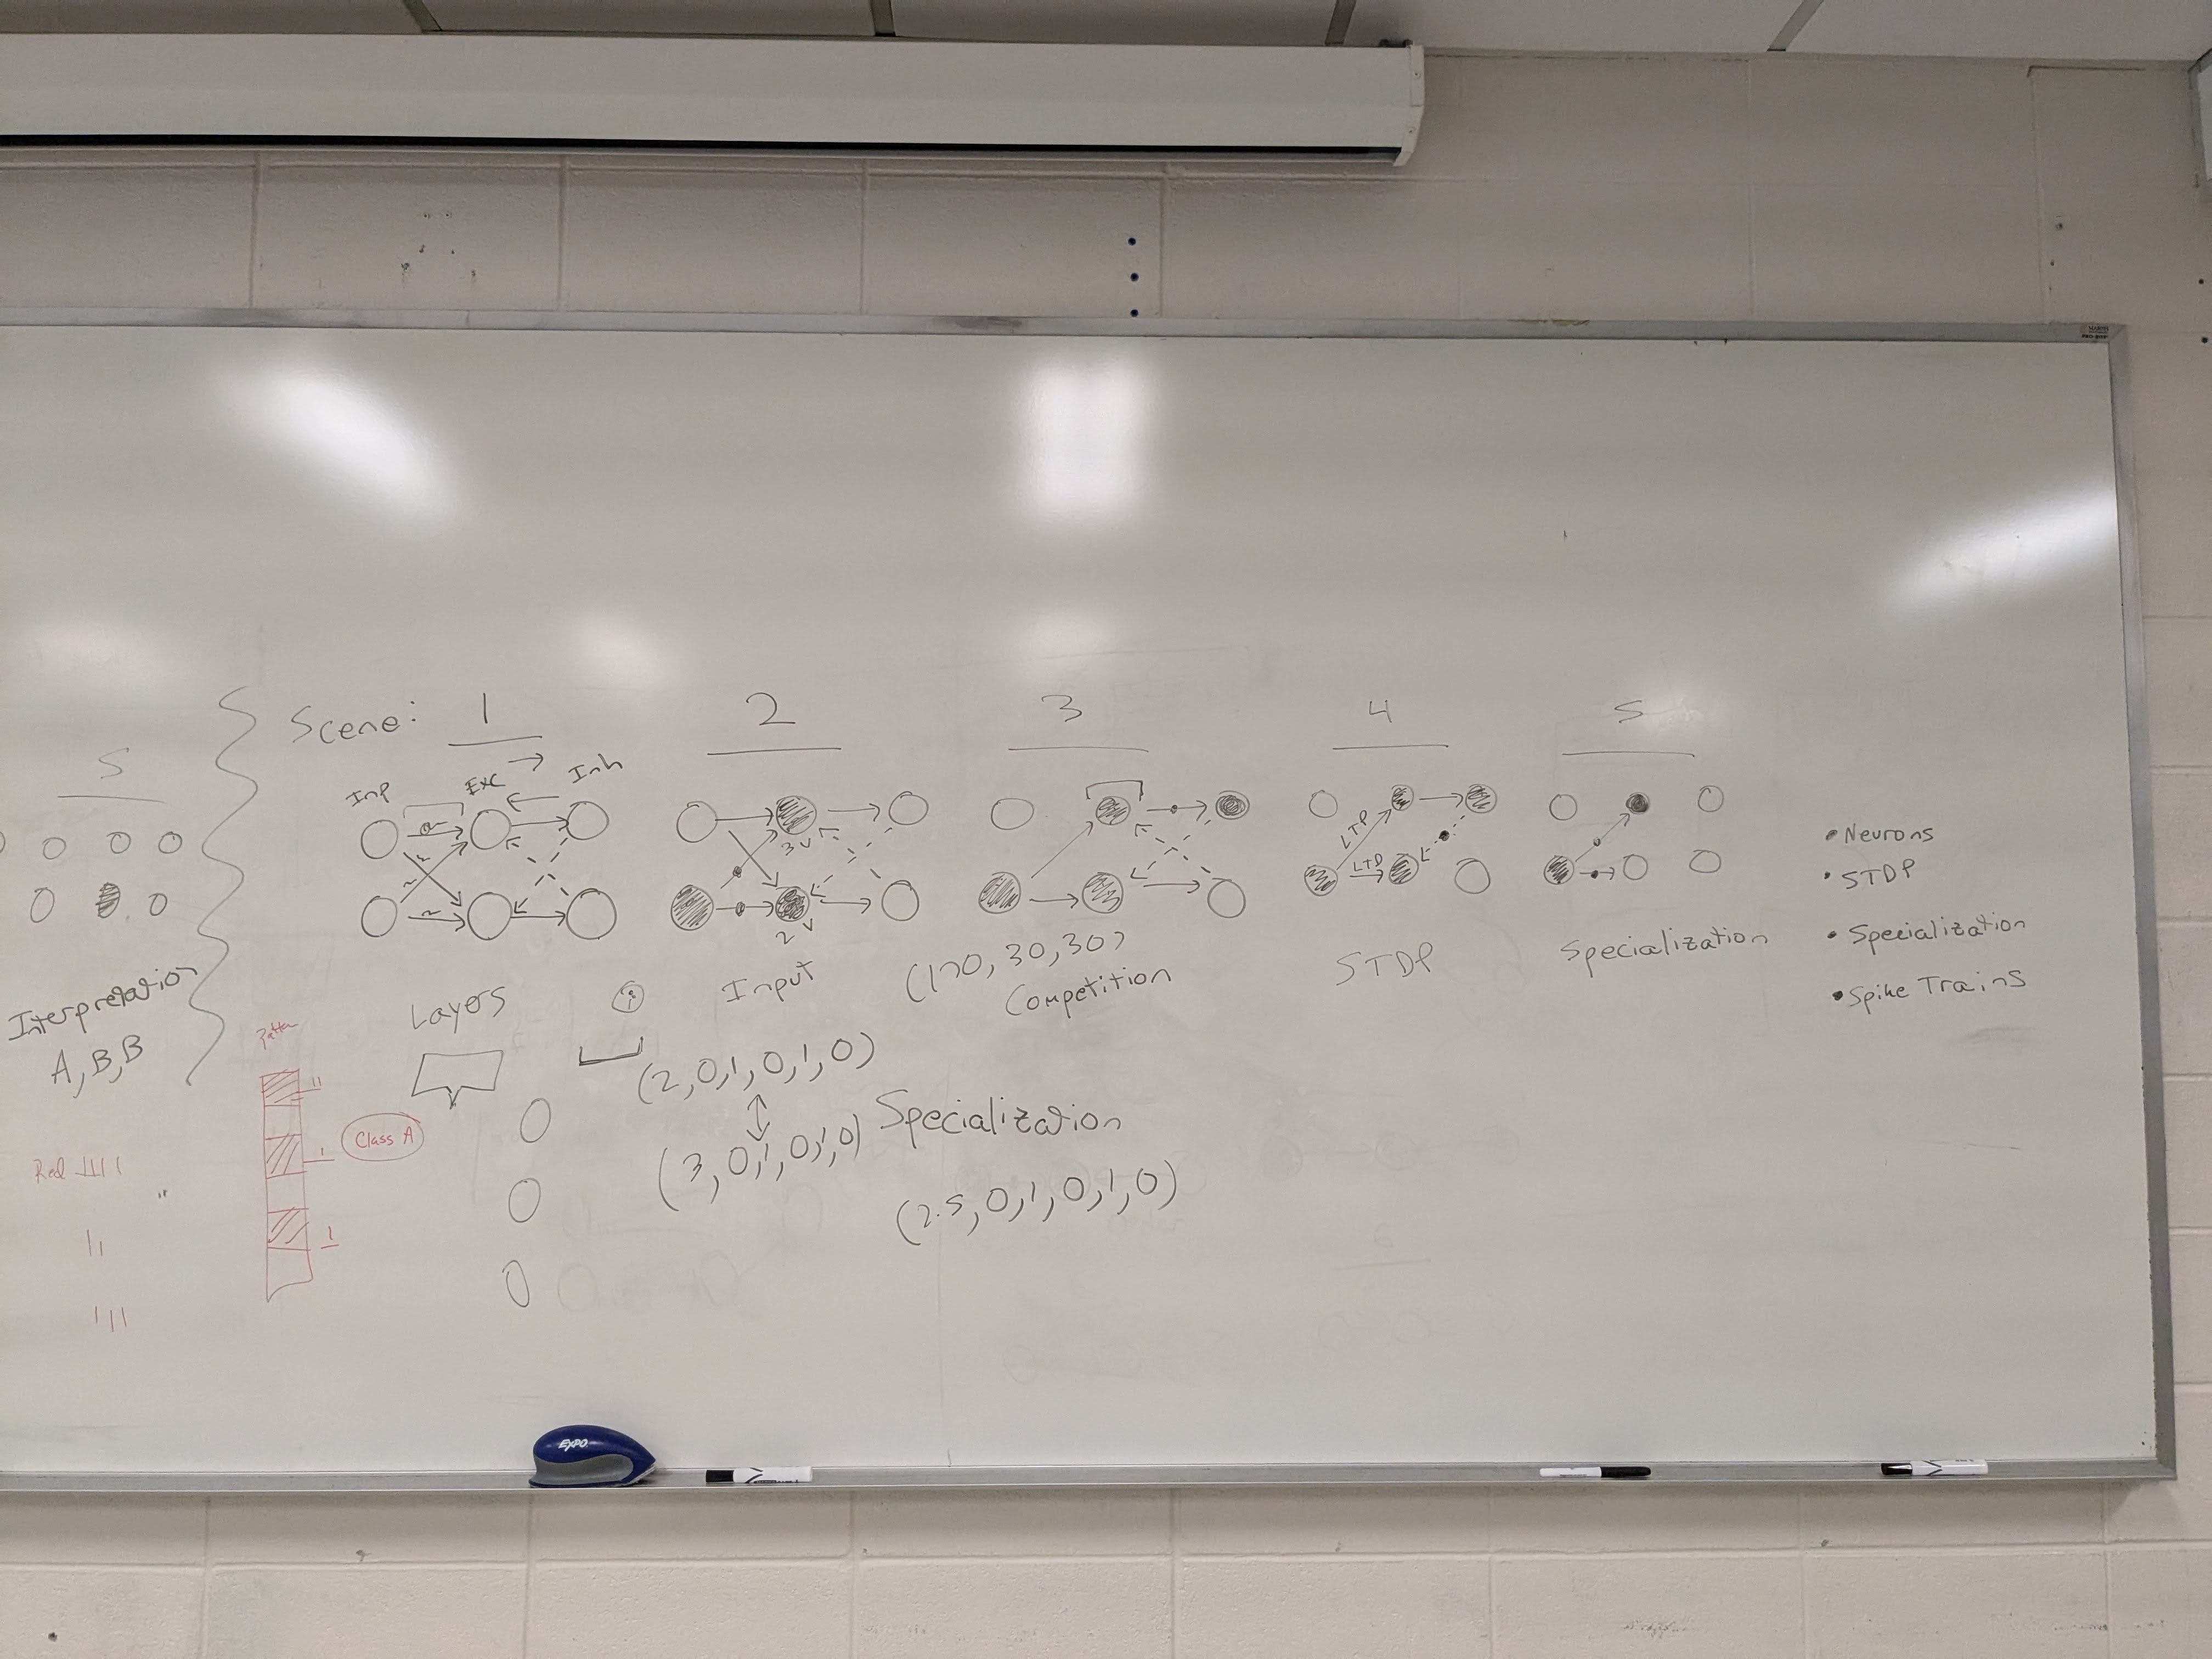 5
Interpretation
A, B, B
Red
Scene: 1 2 3 4 5
Inp Exc Inh
3v
2v
LTP
LTP
Layers
Input
(170, 30, 30)
Competition
STDP
Specialization
• Neurons
• STDP
• Specialization
• Spike Trains
Class A
(2, 0, 1, 0, 1, 0)
(3, 0, 1, 0, 1, 0)
Specialization
(2.5, 0, 1, 0, 1, 0)
EXPO